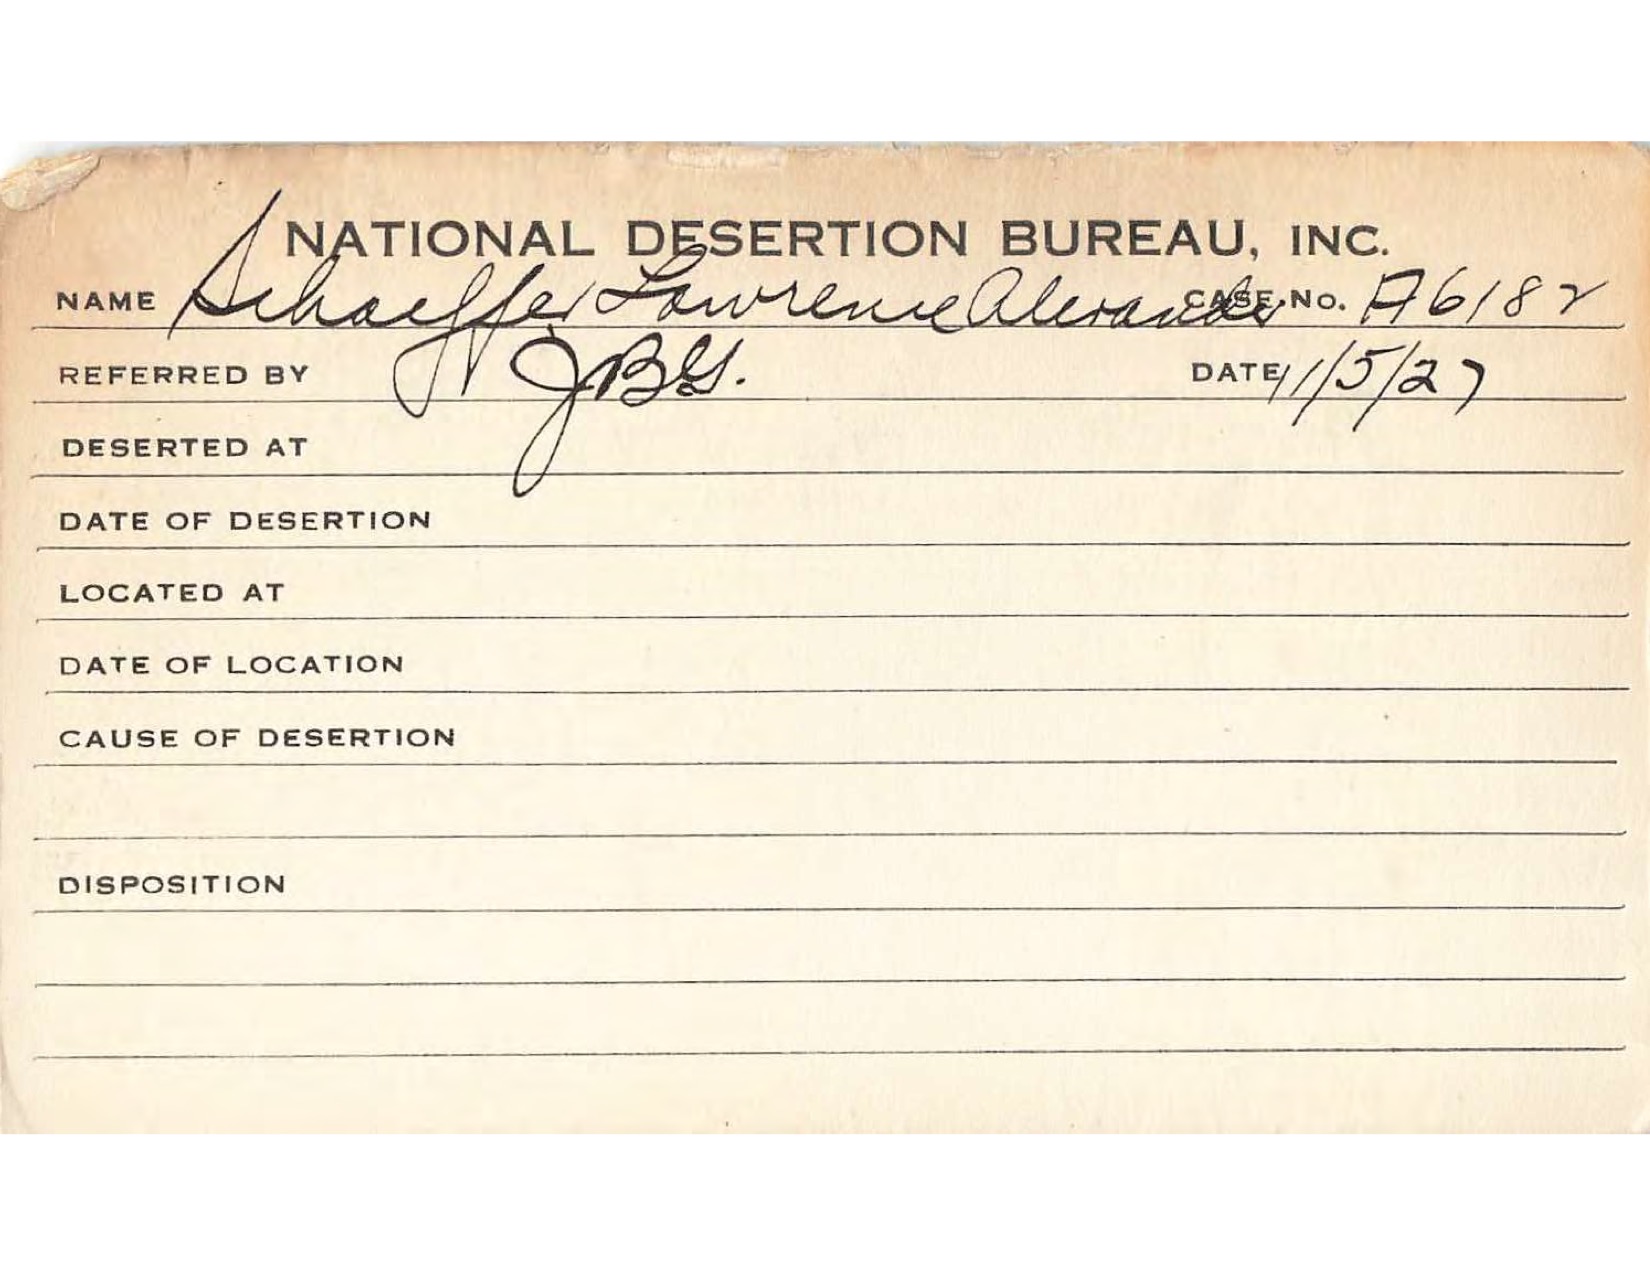 NATIONAL DESERTION BUREAU, INC.
NAME Schaeffer Lawrence Alexander CASE No. A6182
REFERRED BY J.B.G. DATE 11/5/27
DESERTED AT
DATE OF DESERTION
LOCATED AT
DATE OF LOCATION
CAUSE OF DESERTION
DISPOSITION